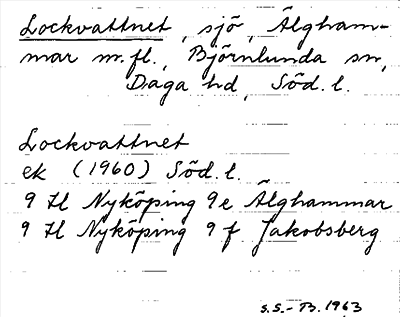 Lockvattnet, sjö, Älgham-
mar m.fl., Björnlunda sn,
Daga hd, Söd. l.
Lockvattnet
ek (1960) Söd. l.
9 H Nyköping 9e Älghammar
9 H Nyköping 9 f Jakobsberg
S.S.-B. 1963